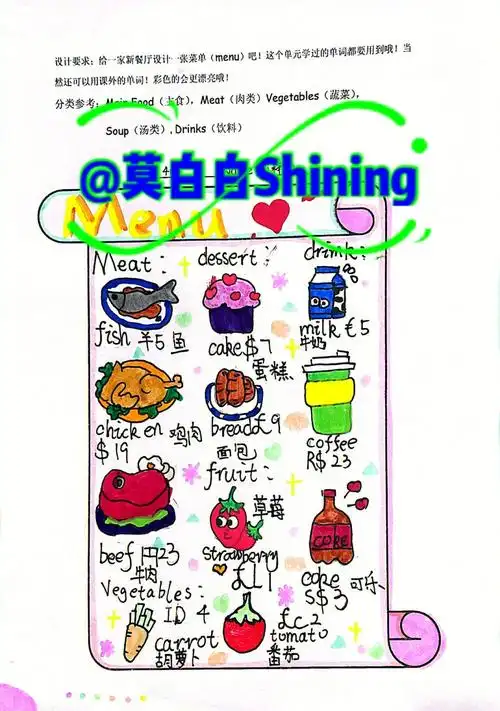 设计要求：给一家新餐厅设计一张菜单（menu）吧！这个单元学过的单词都要用到哦！当
然还可以用课外的单词！彩色的会更漂亮哦！
分类参考：Main Food（主食），Meat（肉类）Vegetables（蔬菜），
Soup（汤类）,Drinks（饮料）
@莫白白Shining
Menu
Meat:
dessert:
drink:
fish 羊5 鱼
cake $ 7
蛋糕
milk € 5
牛奶
chicken 鸡肉
$ 19
bread £ 9
面包
coffee
R$ 23
fruit:
草莓
strawberry
£11
CORE
beef 円23
牛肉
coke 可乐
S$ 3
Vegetables:
ID 4
carrot
胡萝卜
£C 2
tomato
番茄